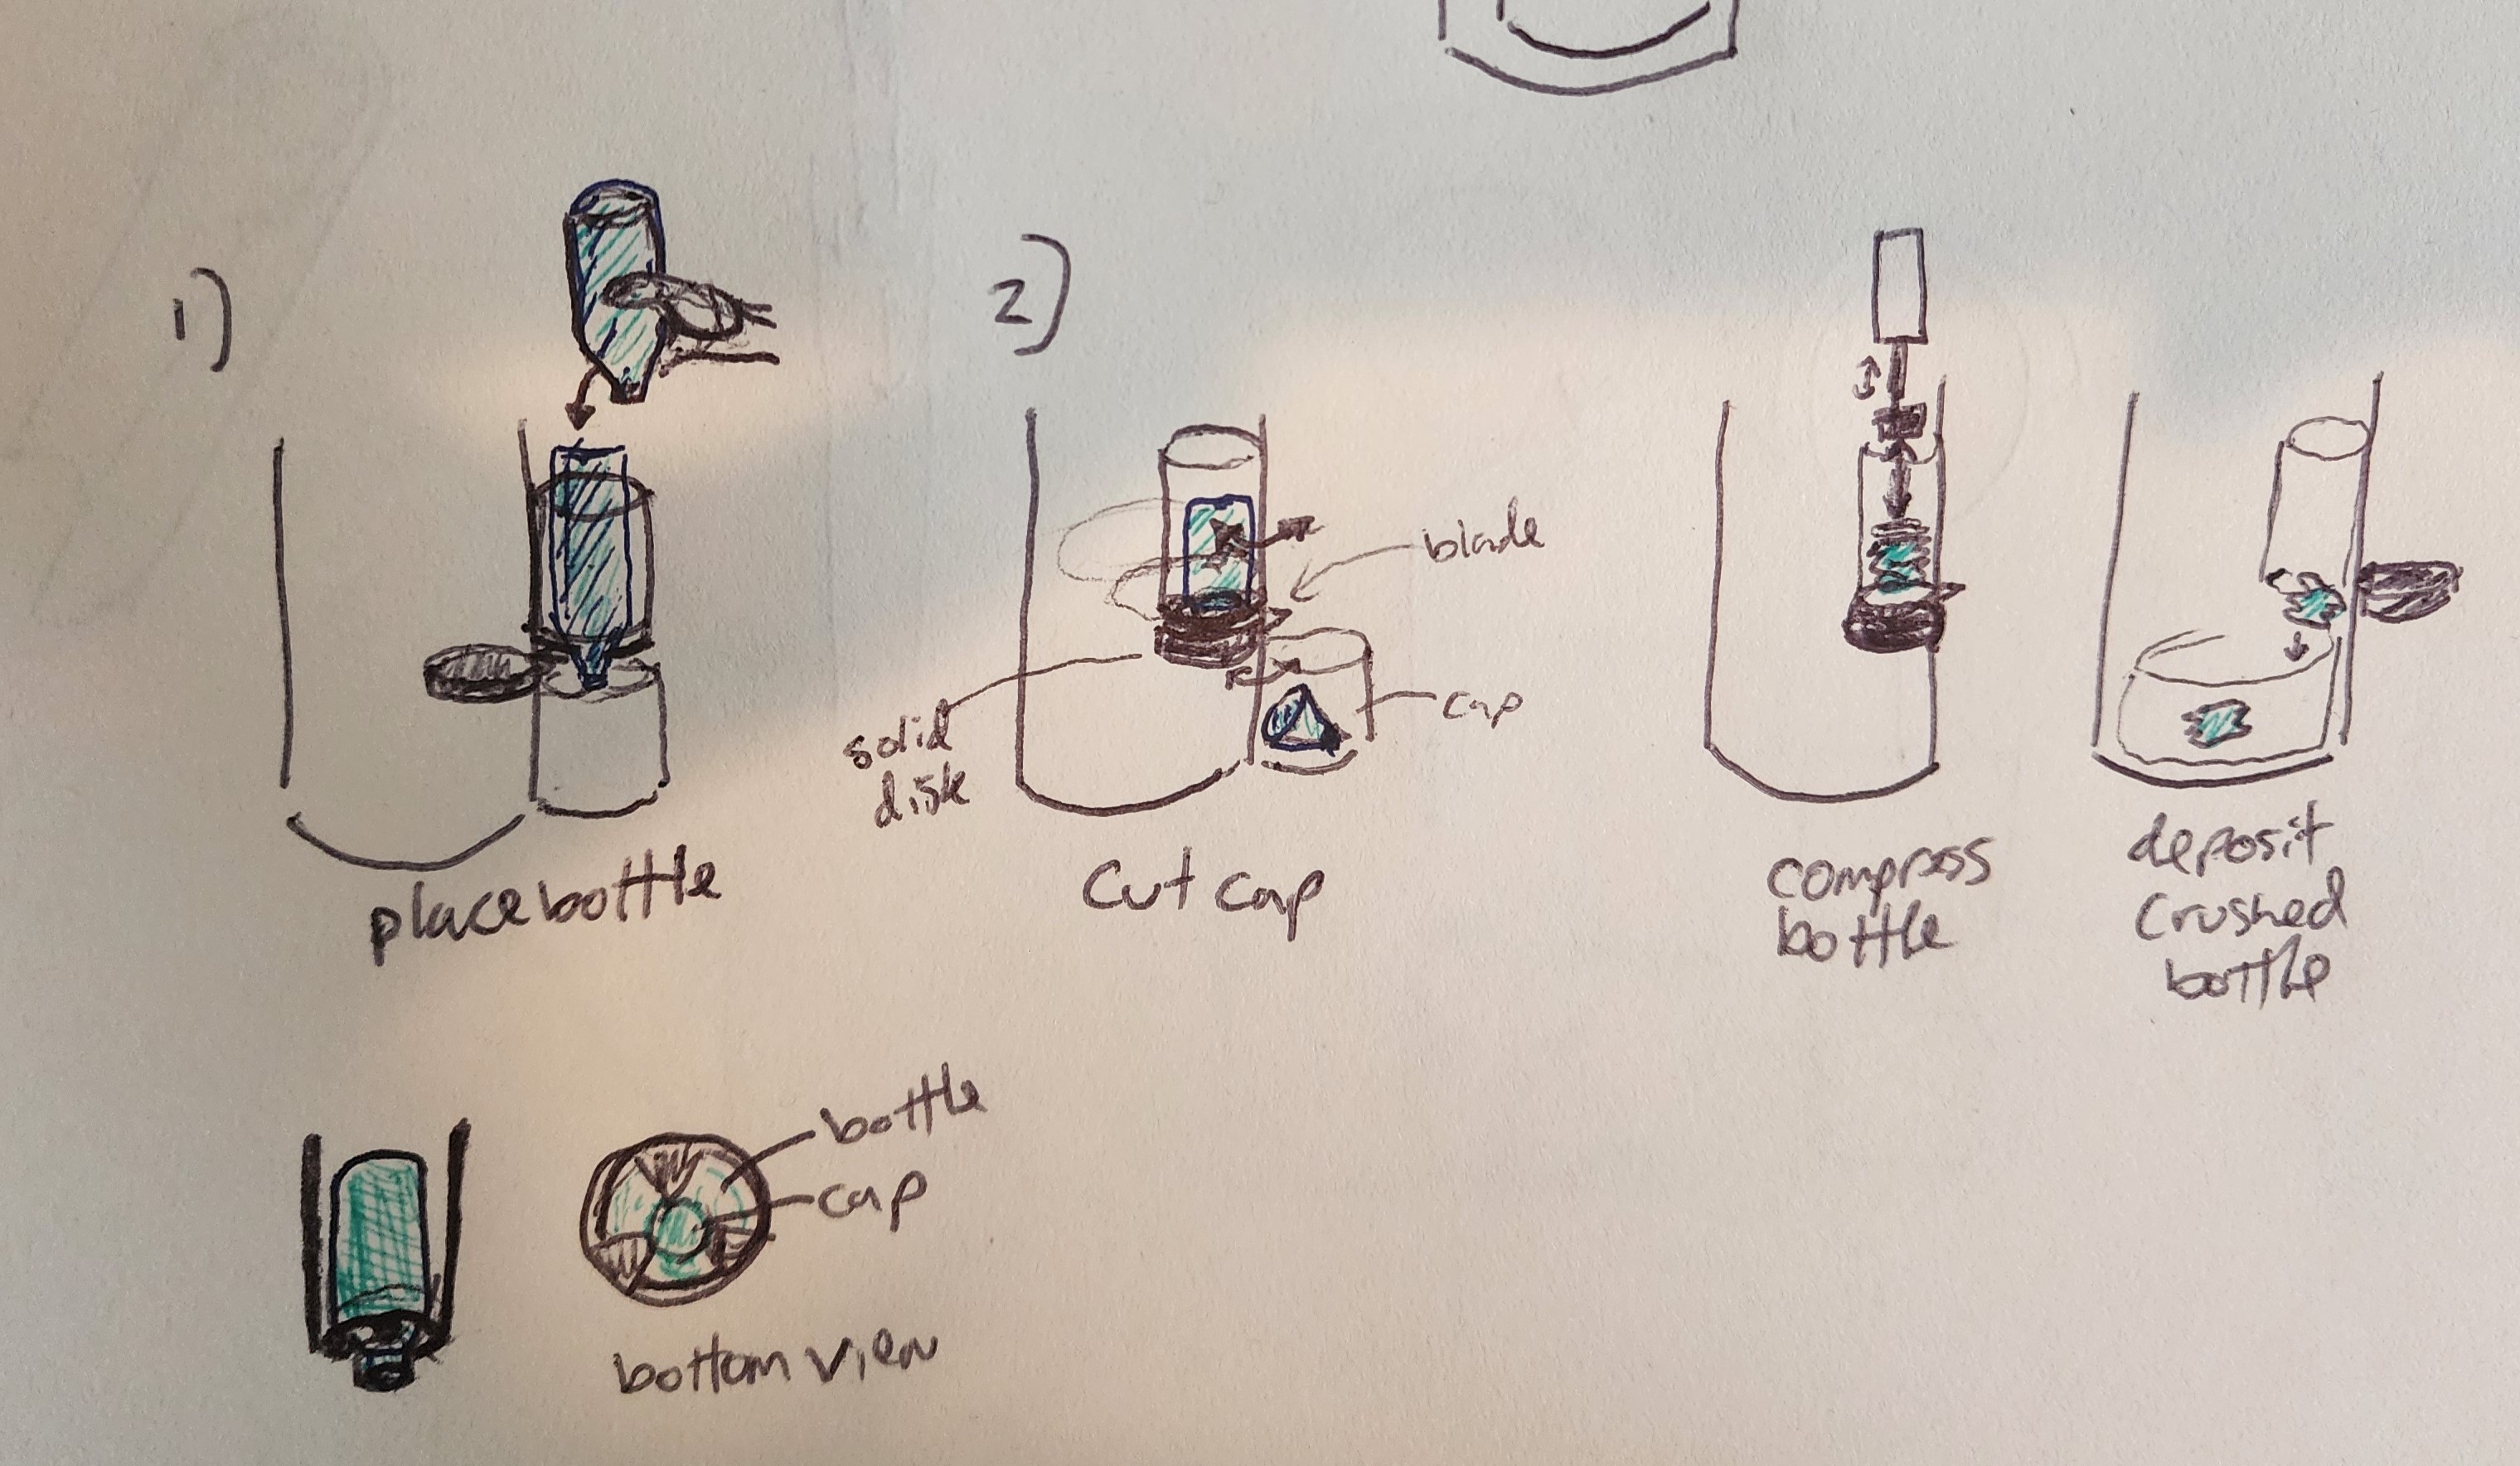 1)
2)
blade
cap
solid
disk
place bottle
cut cap
compress
bottle
deposit
crushed
bottle
bottle
cap
bottom view